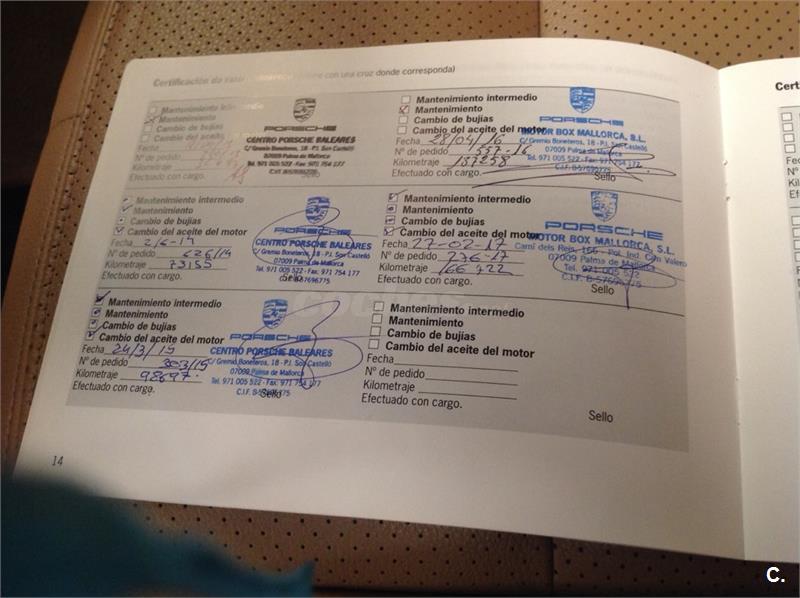 Certificación de
con una cruz donde corresponda)
Mantenimiento intermedio
Mantenimiento
Cambio de bujías
Cambio del aceite
Fecha
Nº de pedido
Kilometraje
Efectuado con cargo.
PORSCHE
CENTRO PORSCHE BALEARES
C/ Gremio Boneteros, 18 - P.I. Son Castelló
07009 Palma de Mallorca
Tel. 971 005 522 - Fax: 971 754 177
Sello
Mantenimiento intermedio
Mantenimiento
Cambio de bujías
Cambio del aceite del motor
Fecha 2/6-14
Nº de pedido 626/14
Kilometraje 73155
Efectuado con cargo.
PORSCHE
CENTRO PORSCHE BALEARES
C/ Gremio Boneteros, 18 - P.I. Son Castelló
07009 Palma de Mallorca
Tel. 971 005 522 - Fax: 971 754 177
C.I.F. B-57696775
Sello
Mantenimiento intermedio
Mantenimiento
Cambio de bujías
Cambio del aceite del motor
Fecha 24/3/15
Nº de pedido 303/15
Kilometraje 98697
Efectuado con cargo.
PORSCHE
CENTRO PORSCHE BALEARES
C/ Gremio Boneteros, 18 - P.I. Son Castelló
07009 Palma de Mallorca
Tel. 971 005 522 - Fax: 971 754 177
C.I.F. B-57696775
Sello
Mantenimiento intermedio
Mantenimiento
Cambio de bujías
Cambio del aceite del motor
Fecha 28/04/16
Nº de pedido 1557-16
Kilometraje 137258
Efectuado con cargo.
PORSCHE
MOTOR BOX MALLORCA, S.L.
C/ Gremio Boneteros, 18 - P.I. Son Castelló
07009 Palma de Mallorca
Tel. 971 005 522 - Fax: 971 754 177
C.I.F. B-57696775
Sello
Mantenimiento intermedio
Mantenimiento
Cambio de bujías
Cambio del aceite del motor
Fecha 27-02-17
Nº de pedido 776-17
Kilometraje 166722
Efectuado con cargo.
PORSCHE
MOTOR BOX MALLORCA, S.L.
Camí dels Reis, 166 - Pol. Ind. Can Valero
07009 Palma de Mallorca
Tel. 971 005 522
C.I.F. B-57696775
Sello
Mantenimiento intermedio
Mantenimiento
Cambio de bujías
Cambio del aceite del motor
Fecha
Nº de pedido
Kilometraje
Efectuado con cargo.
Sello
14
Cert
Fec
Nº
Kil
Efe
C.